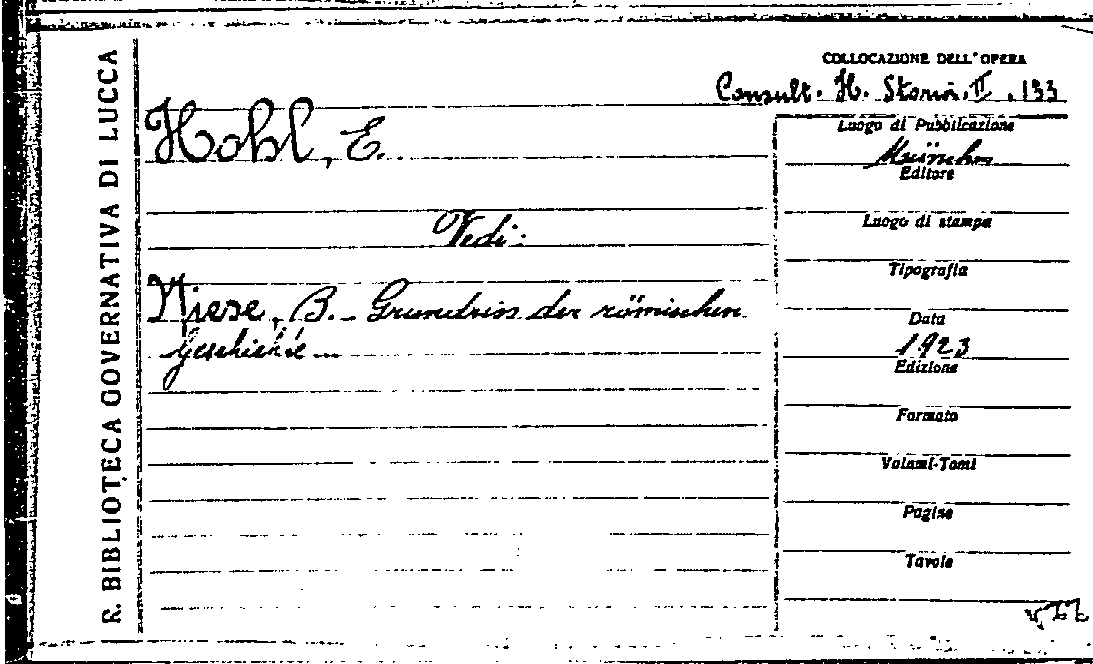 R. BIBLIOTECA GOVERNATIVA DI LUCCA
COLLOCAZIONE DELL'OPERA
Consult. H. Storia. II. 133
Hohl, E.
Vedi:
Niese, B. - Grundriss der römischen
Geschichte...
Luogo di Pubblicazione
München
Editore
Luogo di stampa
Tipografia
Data
1923
Edizione
Formato
Volumi-Tomi
Pagine
Tavole